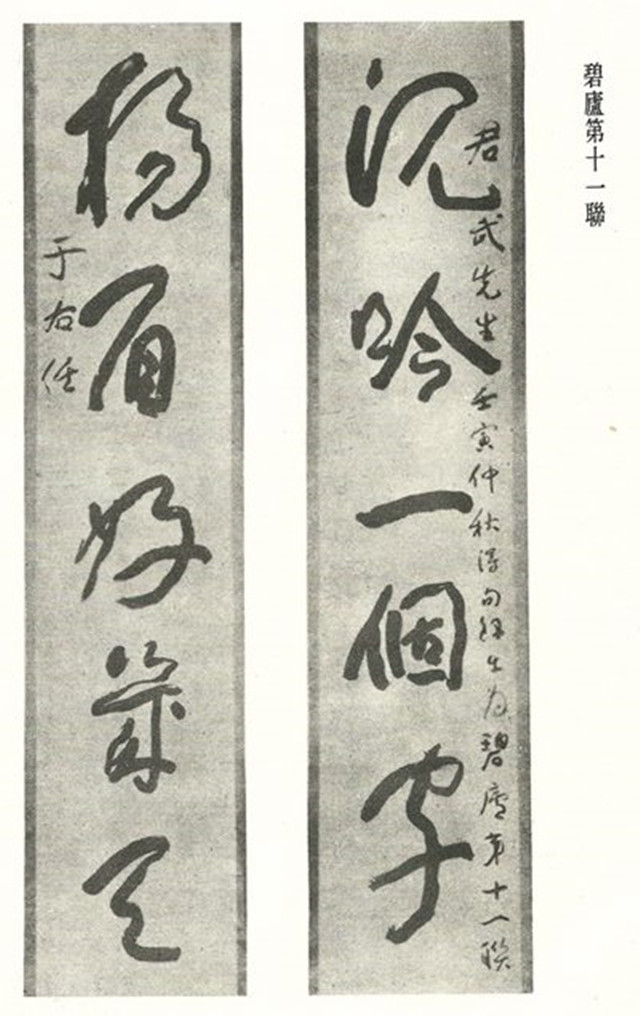 碧廬第十一聯
君武先生 壬寅仲秋得句 為碧廬第十一聯
沉吟一個字
揚眉好幾天
于右任